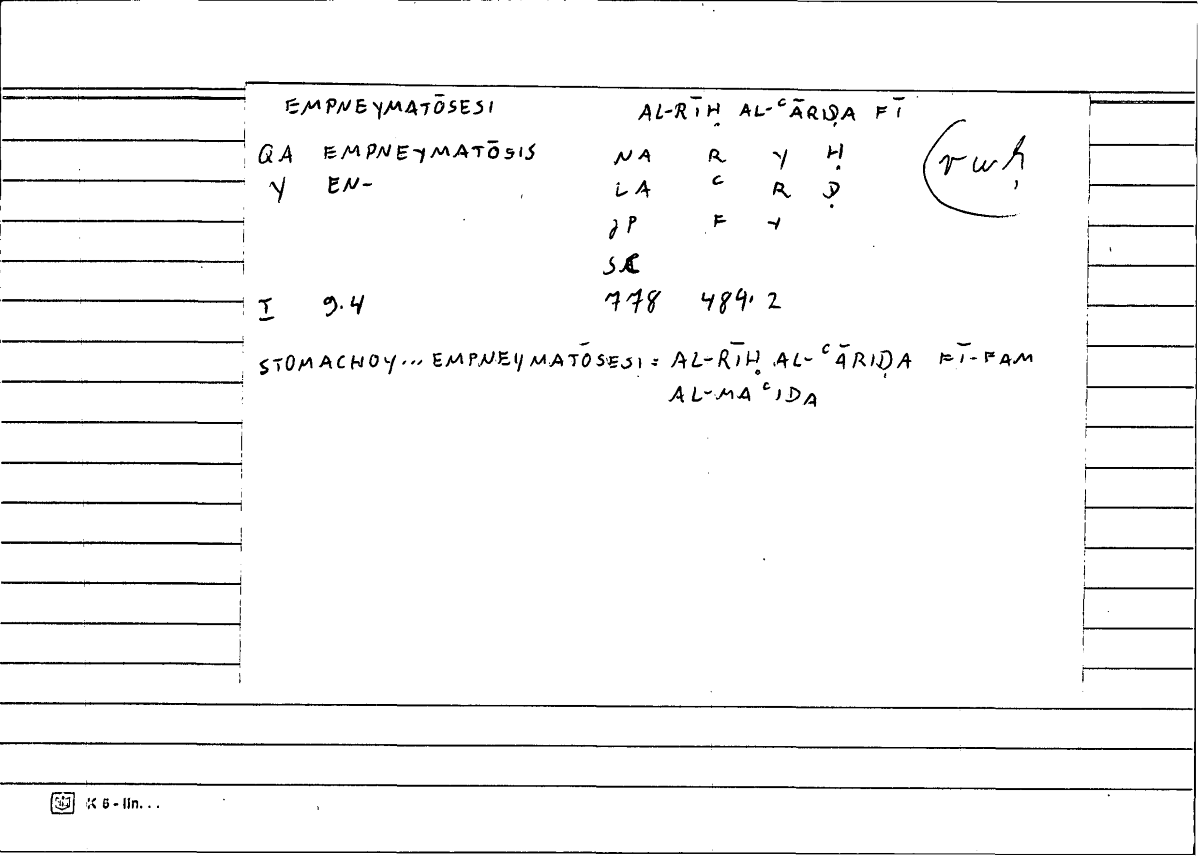 EMPNEYMATŌSESI AL-RĪḤ AL-ʿĀRIḌA FĪ
QA EMPNEYMATŌSIS NA R Y Ḥ (rwḥ
Y EN- LA ʿ R Ḍ
JP F Y
I 9.4 778 484.2
STOMACHOY... EMPNEYMATŌSESI = AL-RĪḤ AL-ʿĀRIḌA FĪ-FAM
AL-MAʿIDA
K 6 - lin...